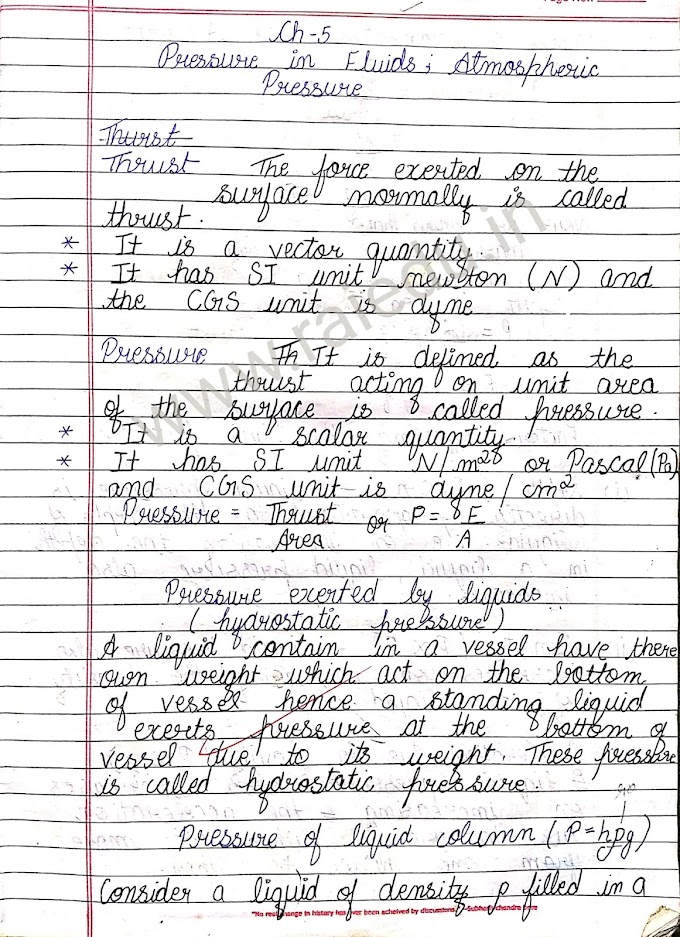 Ch-5
Pressure in Fluids; Atmospheric
Pressure
Thurst
Thrust The force exerted on the
surface normally is called
thrust.
* It is a vector quantity.
* It has SI unit newton (N) and
the CGS unit is dyne
Pressure Th It is defined as the
thrust acting on unit area
of the surface is called pressure.
* It is a scalar quantity
* It has SI unit N/m² or Pascal (Pa)
and CGS unit is dyne/cm²
Pressure = Thrust or P = F
Area A
Pressure exerted by liquids
(hydrostatic pressure)
A liquid contain in a vessel have there
own weight which act on the bottom
of vessel hence a standing liquid
exerts pressure at the bottom of
vessel due to its weight. These pressure
is called hydrostatic pressure.
Pressure of liquid column (P=hρg)
Consider a liquid of density ρ filled in a
"No real change in history has ever been acheived by discussions." -Subhash chandra Bose
www.raiedu.in